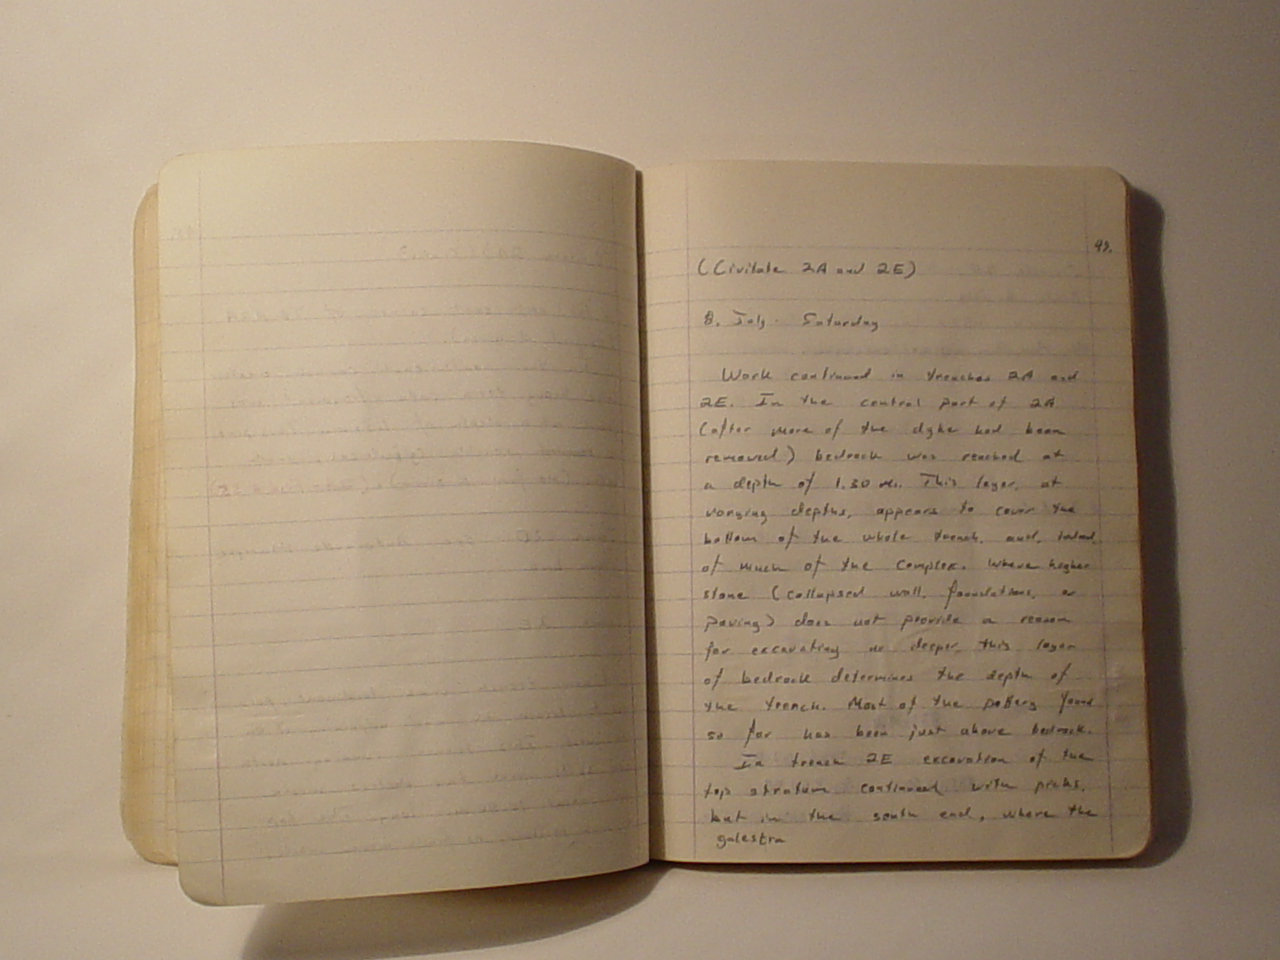 49.
(Civitate 2A and 2E)
8. July. Saturday
Work continued in trenches 2A and
2E. In the central part of 2A
(after more of the dyke had been
removed) bedrock was reached at
a depth of 1.30 m. This layer, at
varying depths, appears to cover the
bottom of the whole trench, and, indeed,
of much of the complex. Where higher
stone (collapsed wall, foundations, or
paving) does not provide a reason
for excavating no deeper, this layer
of bedrock determines the depth of
the trench. Most of the pottery found
so far has been just above bedrock.
In trench 2E excavation of the
top stratum continued with picks,
but in the south end, where the
galestra